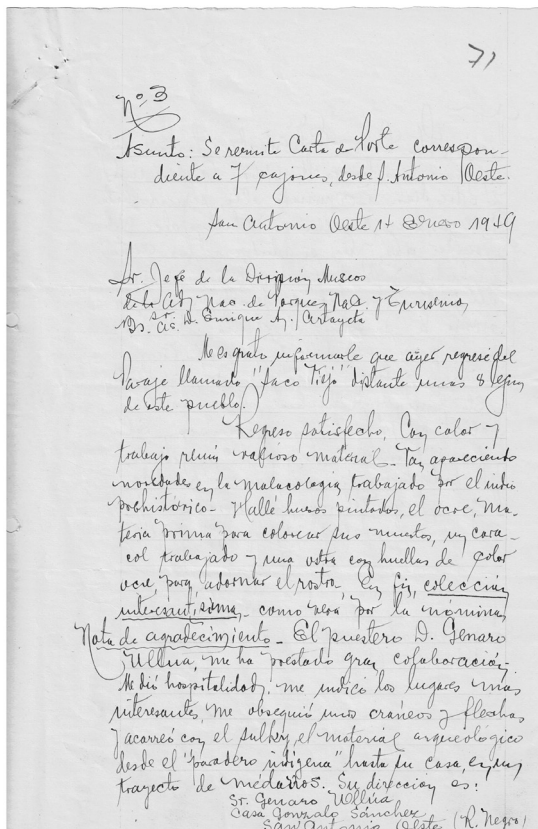 71
Nº 3
Asunto: Se remite Carta de Porte correspon-
diente a 7 cajones, desde S. Antonio Oeste.
San Antonio Oeste 14 Enero 1949
Sr. Jefe de la División Museos
de la Ad. Nac. de Parques Nac. y Turismo
Bs. As. Sr. D. Enrique A. Artayeta
Me es grato informarle que ayer regresé del
Paraje llamado "Saco Viejo" distante unas 8 leguas
de este pueblo.
Regreso satisfecho. Con calor y
trabajo reuní valioso material. Van apareciendo
novedades en la malacología trabajado por el indio
prehistórico. Hallé huesos pintados, el ocre, ma-
teria prima para colorear sus muertos, un cara-
col trabajado y una ostra con huellas de color
ocre, para adornar el rostro. En fin, colección
interesantísima, como verá por la nómina
Nota de agradecimiento - El puestero D. Genaro
Ullúa, me ha prestado gran colaboración.
Me dió hospitalidad, me indicó los lugares más
interesantes, me obsequió unos cráneos y flechas
y acarreó con el sulky, el material arqueológico
desde el "paradero indígena" hasta su casa, en un
trayecto de médanos. Su dirección es:
Sr. Genaro Ullúa
Casa Gonzalo Sánchez
San Antonio Oeste (R. Negro)